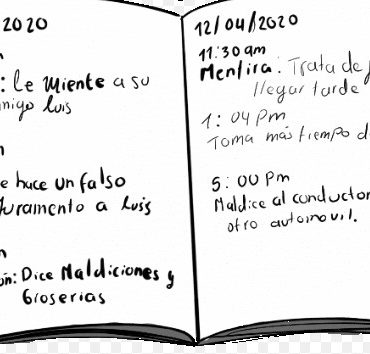 2020
: Le Miente a su
Luis
hace un falso
Juramento a Luis
Dice Maldiciones y
Groserias
12/04/2020
11:30 am
Mentira: Trata de
llegar tarde
1:04 Pm
Toma más tiempo
5:00 Pm
Maldice al conductor
otro automovil.